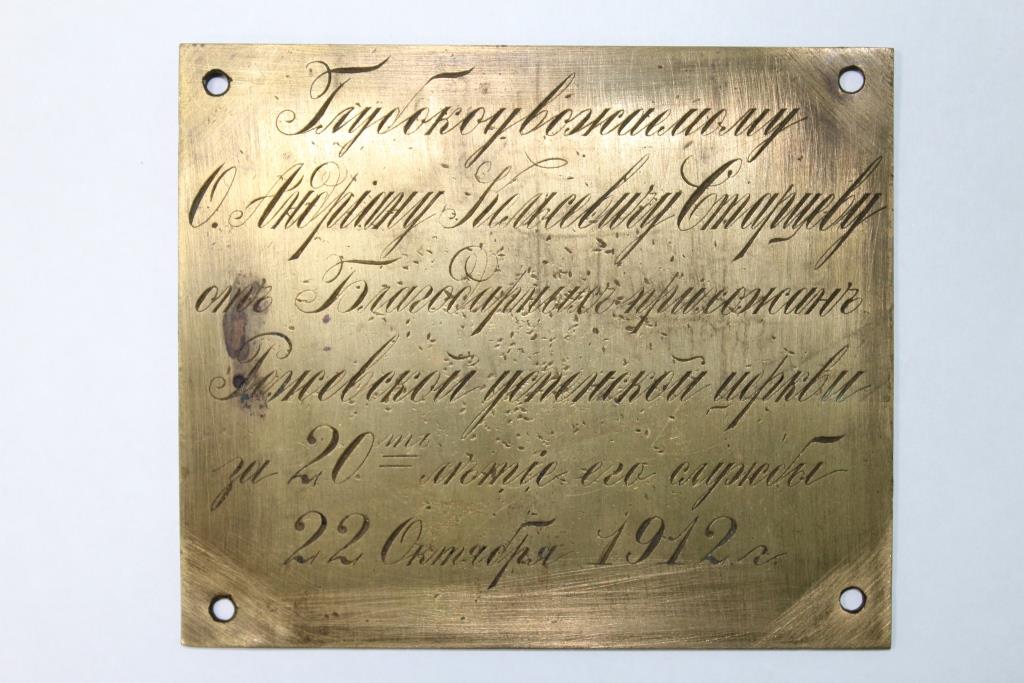 Глубокоуважаемому
О. Андріану Власевичу Старцеву
отъ Благодарныхъ прихожанъ
Ражевской успенской церкви
за 20ти лѣтіе его службы
22 Октября 1912 г.